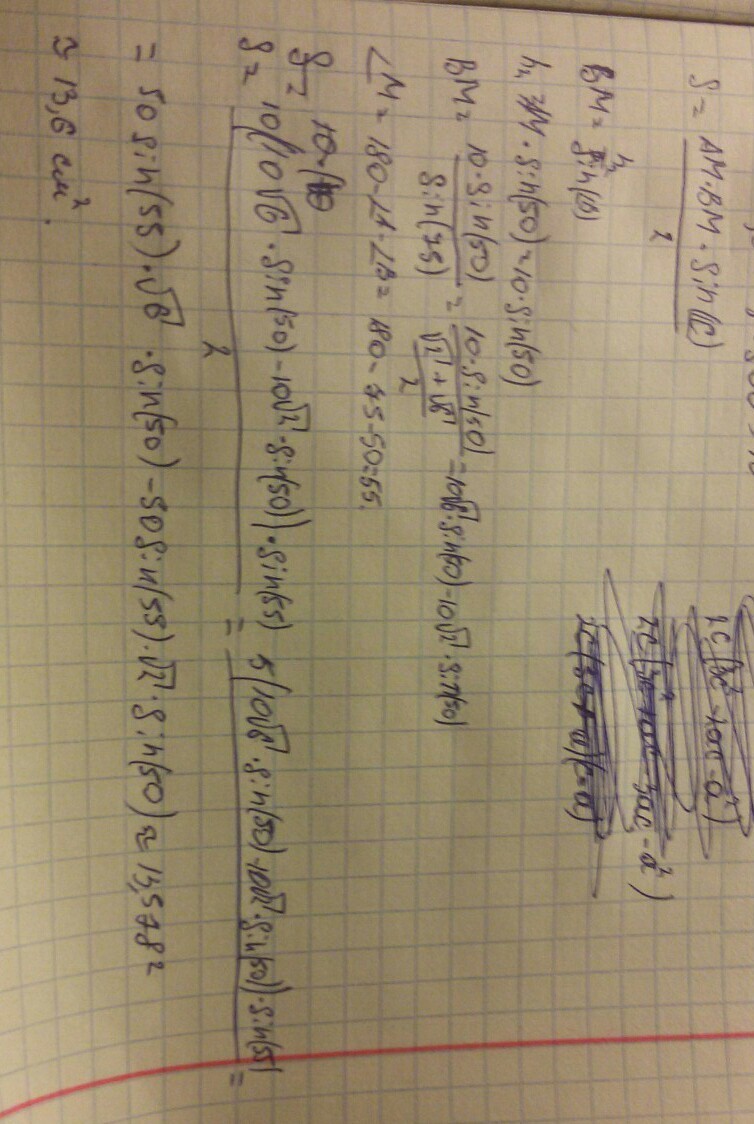 S = AM·BM·sin(C) / 2
BM = h₂ / sin(B)
h₂ = AM · sin(50) = 10 · sin(50)
BM = 10·sin(50) / sin(75) = 10·sin(50) / ((√2 + √6) / 2) = 10√6·sin(50) - 10√2·sin(50)
∠M = 180-∠A-∠B = 180-75-50=55.
S = 10(10√6 · sin(50) - 10√2 · sin(50)) · sin(55) / 2 = 5(10√6 · sin(50) - 10√2 · sin(50)) · sin(55) =
= 50 sin(55) · √6 · sin(50) - 50 sin(55) · √2 · sin(50) ≈ 13,578²
≈ 13,6 см².